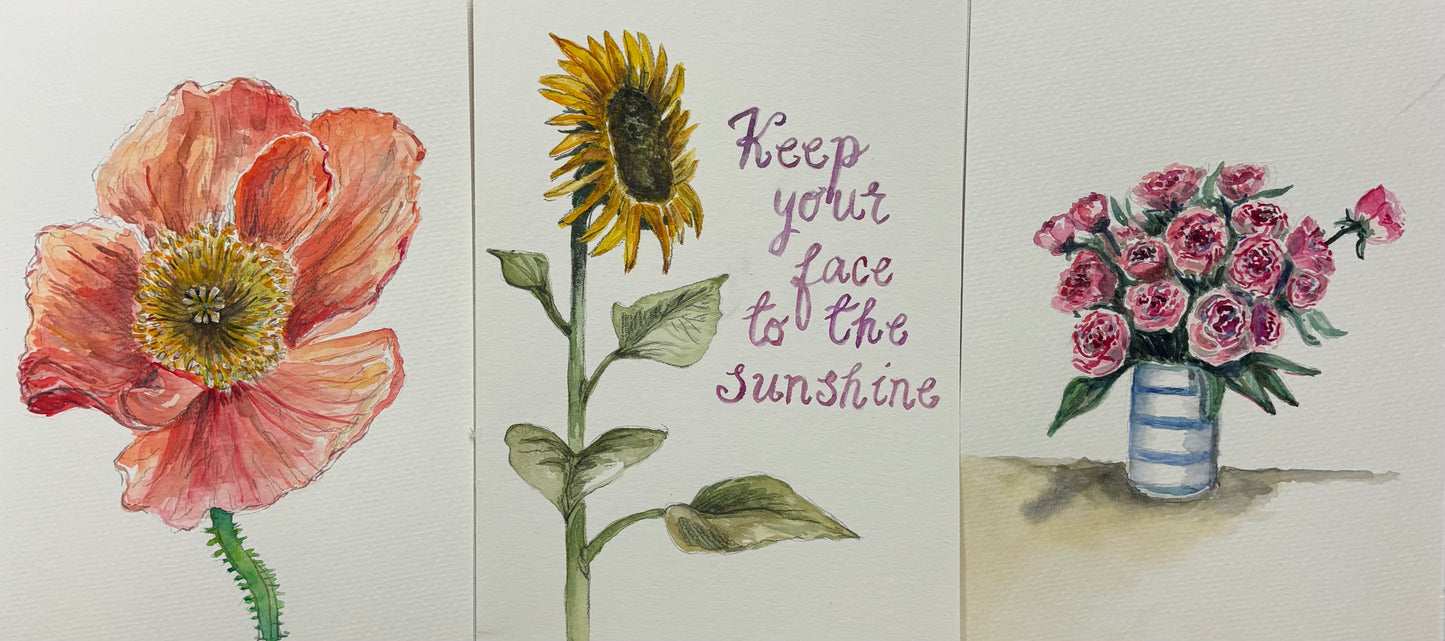 Keep
your
face
to the
sunshine